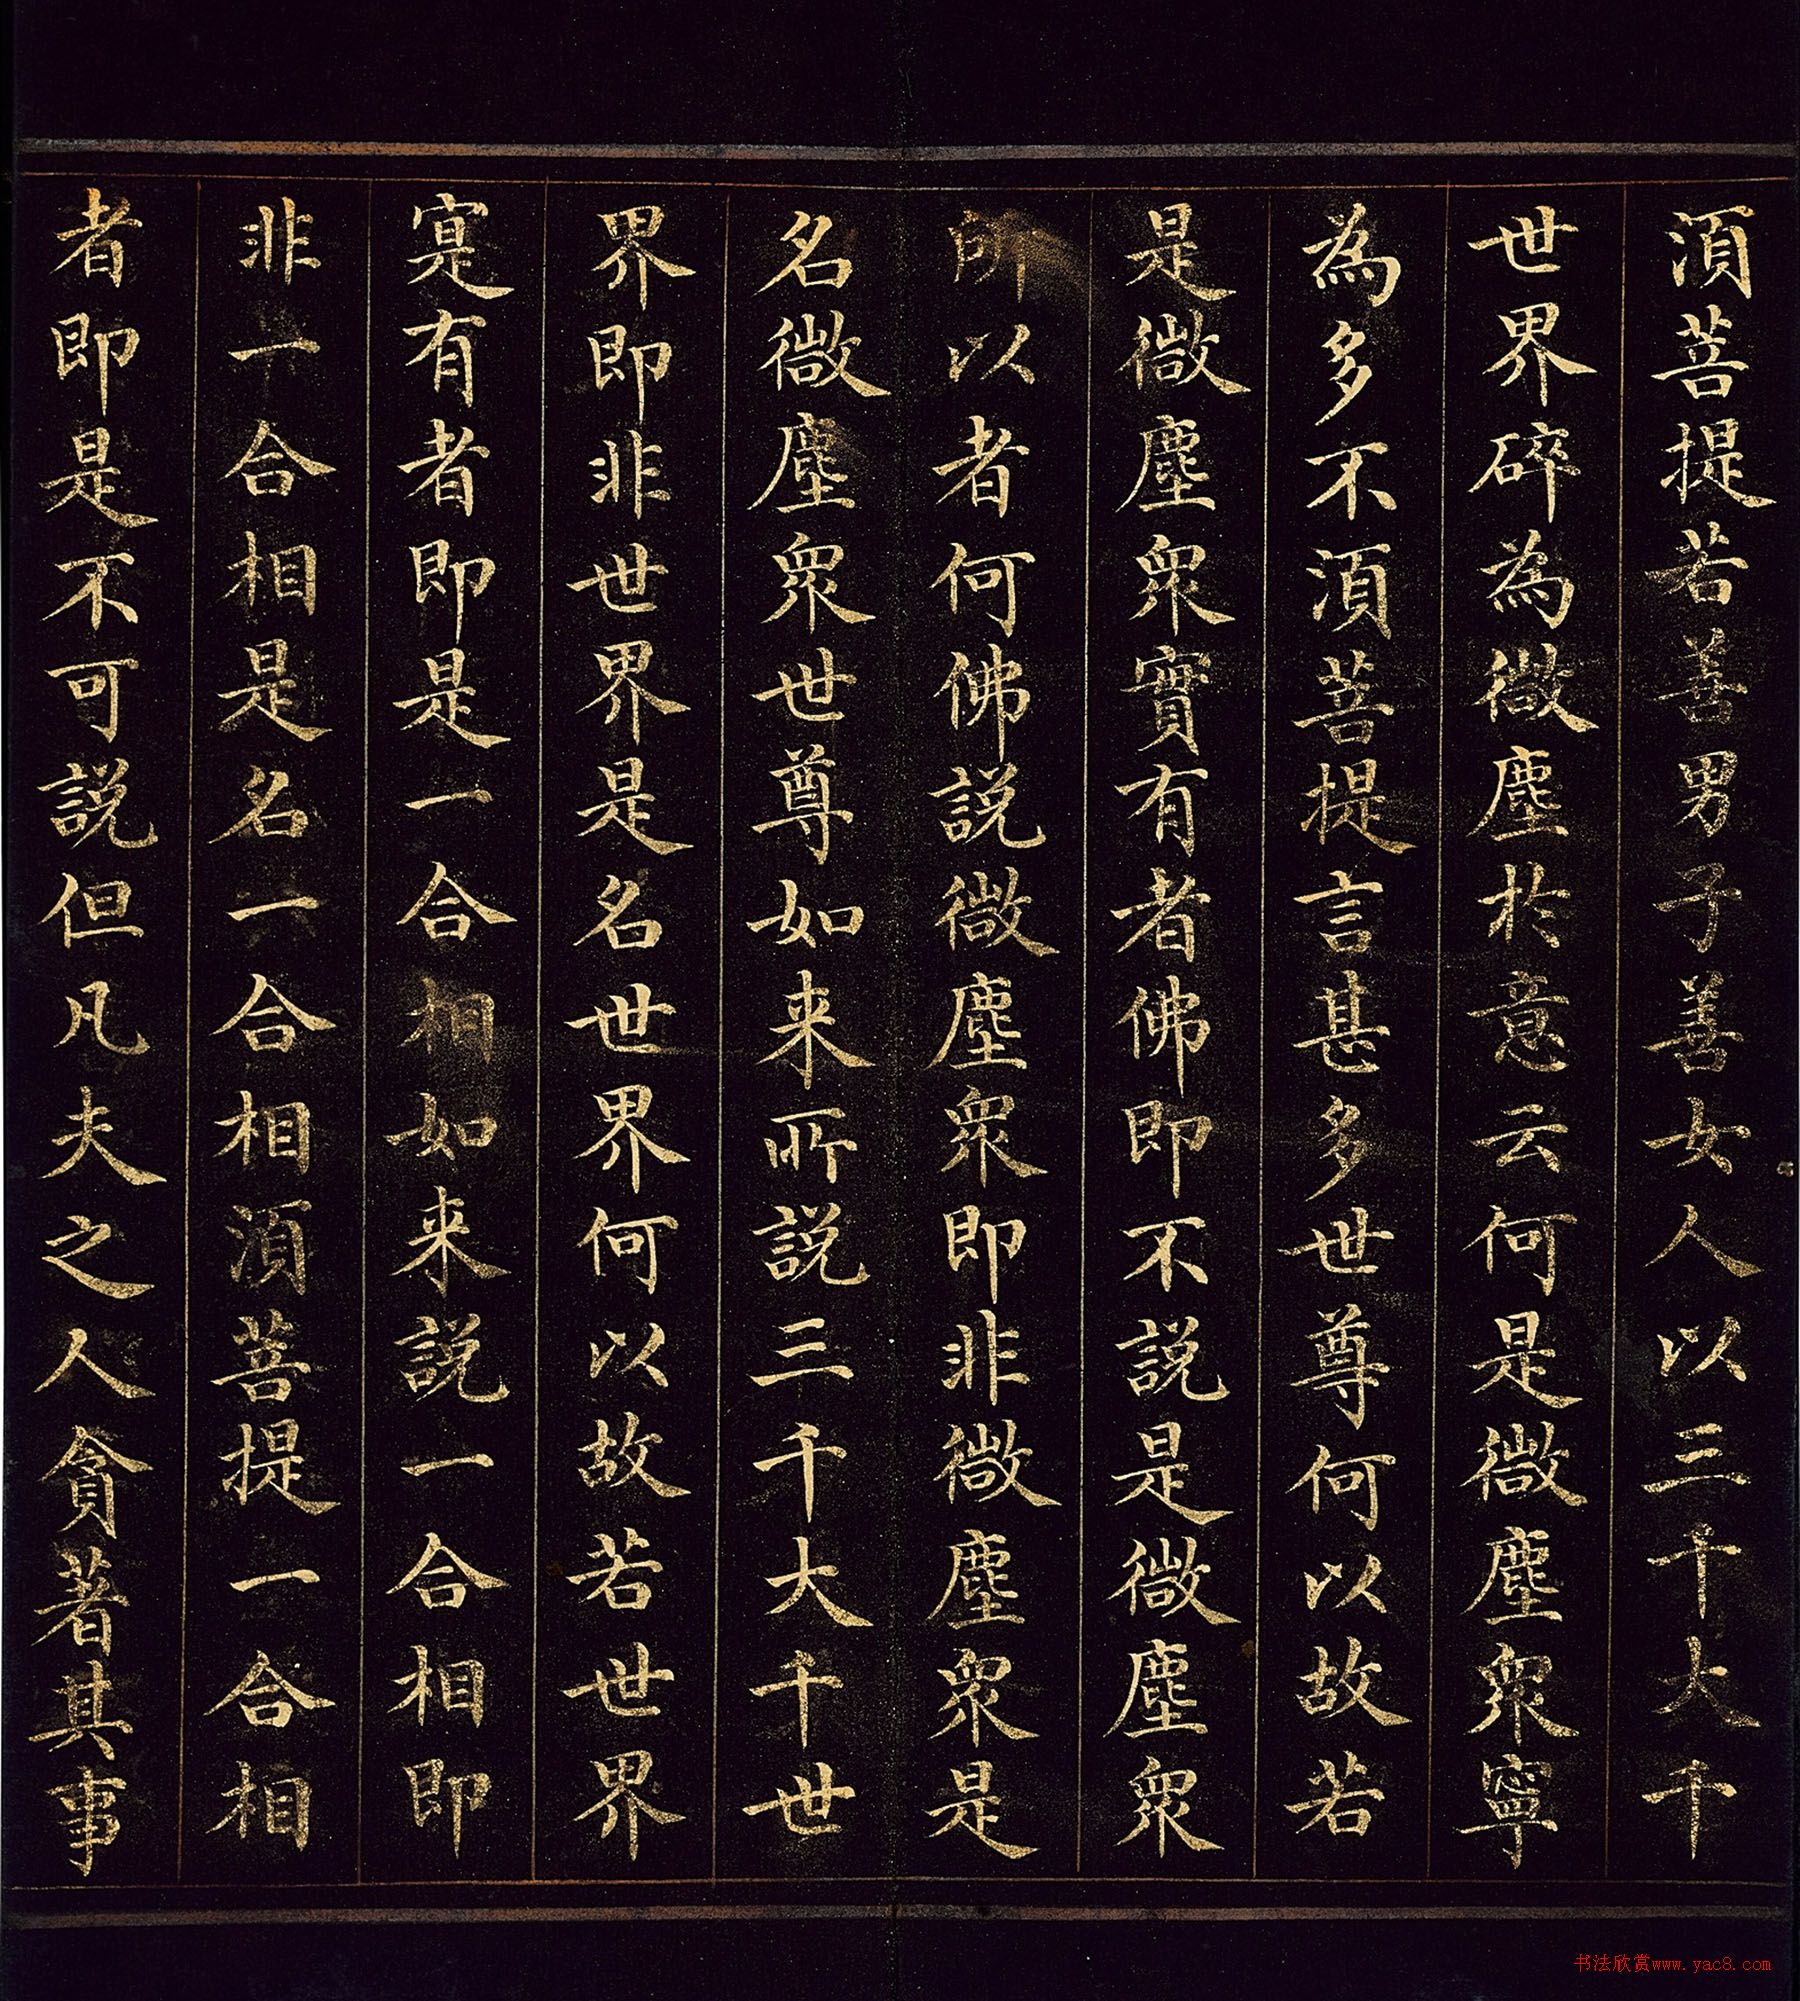 湏菩提若善男子善女人以三千大千
世界碎為微塵於意云何是微塵衆寧
為多不湏菩提言甚多世尊何以故若
是微塵衆實有者佛即不説是微塵衆
所以者何佛説微塵衆即非微塵衆是
名微塵衆世尊如来所説三千大千世
界即非世界是名世界何以故若世界
寔有者即是一合相如来説一合相即
非一合相是名一合相湏菩提一合相
者即是不可説但凡夫之人貪著其事
书法欣赏www.yac8.com